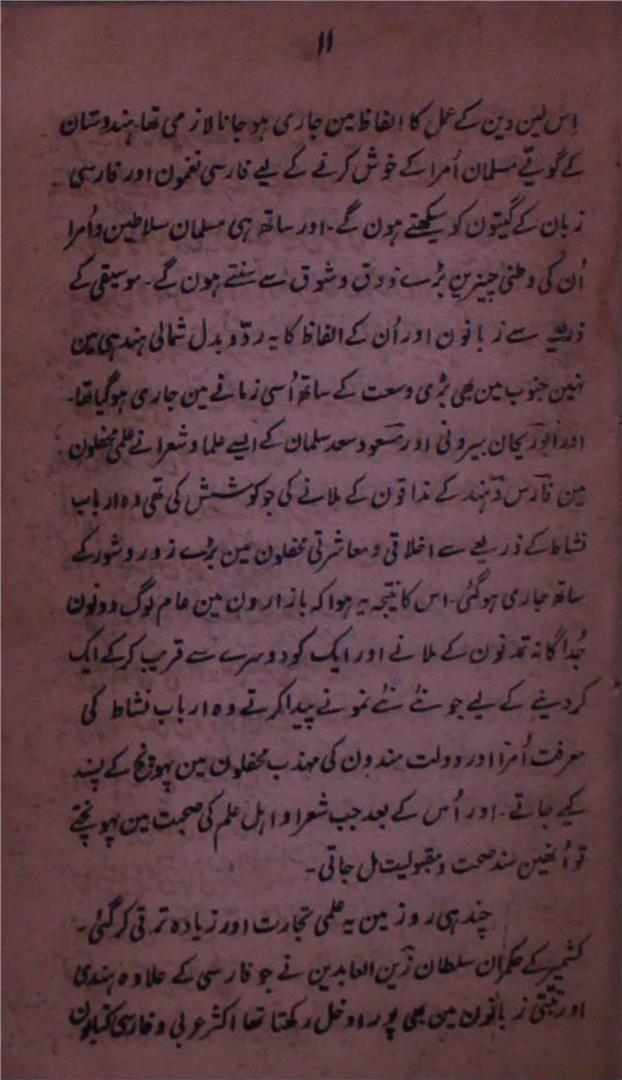 ۱۱
اِس لین دین کے عمل کا اِلفاظ مین جاری ہو جانا لازمی تھا، ہندوستان
کے گویّے مسلمان اُمرا کے خوش کرنے کے لیے فارسی نغمون اور فارسی
زبان کے گیتون کو سیکھتے ہون گے۔ اور ساتھ ہی مسلمان سلاطین و اُمرا
اُن کی وطنی چیزین بڑے ذوق و شوق سے سنتے ہون گے۔ موسیقی کے
ذریعے سے زبانون اور اُن کے الفاظ کا یہ ردّ و بدل شمالی ہند ہی مین
نہین جنوب مین بھی بڑی وسعت کے ساتھ اُسی زمانے مین جاری ہو گیا تھا۔
اور ابوریحان بیرونی اور مسعود سعد سلمان کے ایسے علما و شعرا نے علمی محفلون
مین فارس و ہند کے مذاقون کے ملانے کی جو کوشش کی تھی وہ ارباب
نشاط کے ذریعے سے اخلاقی و معاشرتی محفلون مین بڑے زور و شور کے
ساتھ جاری ہو گئی۔ اس کا نتیجہ یہ ہوا کہ بازارون مین عام لوگ دونون
جُداگانہ تمدنون کے ملانے اور ایک کو دوسرے سے قریب کر کے ایک
کر دینے کے لیے جو نئے نئے نمونے پیدا کرتے وہ ارباب نشاط کی
معرفت اُمرا اور دولت مندون کی مہذب محفلون مین پہونچ کے پسند
کیے جاتے۔ اور اُس کے بعد جب شعرا و اہل علم کی صحبت مین پہونچتے
تو اُنھین سند صحت و مقبولیت مل جاتی۔
چند ہی روز مین یہ علمی تجارت اور زیادہ ترقی کر گئی۔
کشمیر کے حکمران سلطان زین العابدین نے جو فارسی کے علاوہ ہندی
اور تبّتی زبانون مین بھی پورا دخل رکھتا تھا اکثر عربی و فارسی کتابون